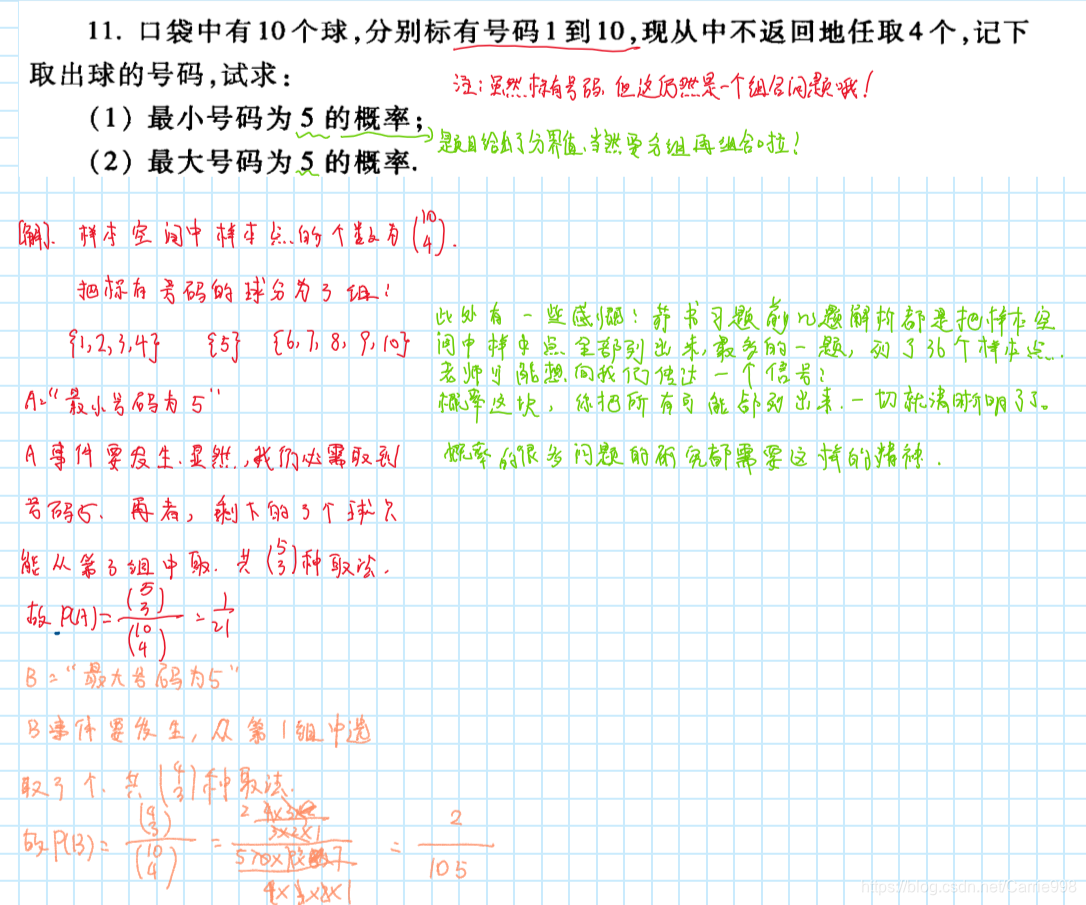 11. 口袋中有10个球,分别标有号码1到10,现从中不返回地任取4个,记下
取出球的号码,试求:
注:虽然标有号码,但这仍然是一个组合问题哦!
(1) 最小号码为5的概率;
是题目给出了分界值,当然要分组再组合啦!
(2) 最大号码为5的概率.
[解]. 样本空间中样本点的个数为(10 4).
把标有号码的球分为3组:
{1,2,3,4} {5} {6,7,8,9,10}
此处有一些感慨:茆书习题前几题解析都是把样本空
间中样本点全部列出来,最多的一题,列了36个样本点.
老师可能想向我们传达一个信号:
概率这块,你把所有可能都列出来.一切就清晰明了了。
概率的很多问题的研究都需要这样的精神.
A="最小号码为5"
A事件要发生.显然,我们必需取到
号码5. 再者,剩下的3个球只
能从第3组中取.共(5 3)种取法.
故P(A)=(5 3)/(10 4)=1/21
B="最大号码为5"
B事件要发生,从第1组中选
取3个.共(4 3)种取法.
故P(B)=(4 3)/(10 4)= = 2/105
https://blog.csdn.net/Carrie998